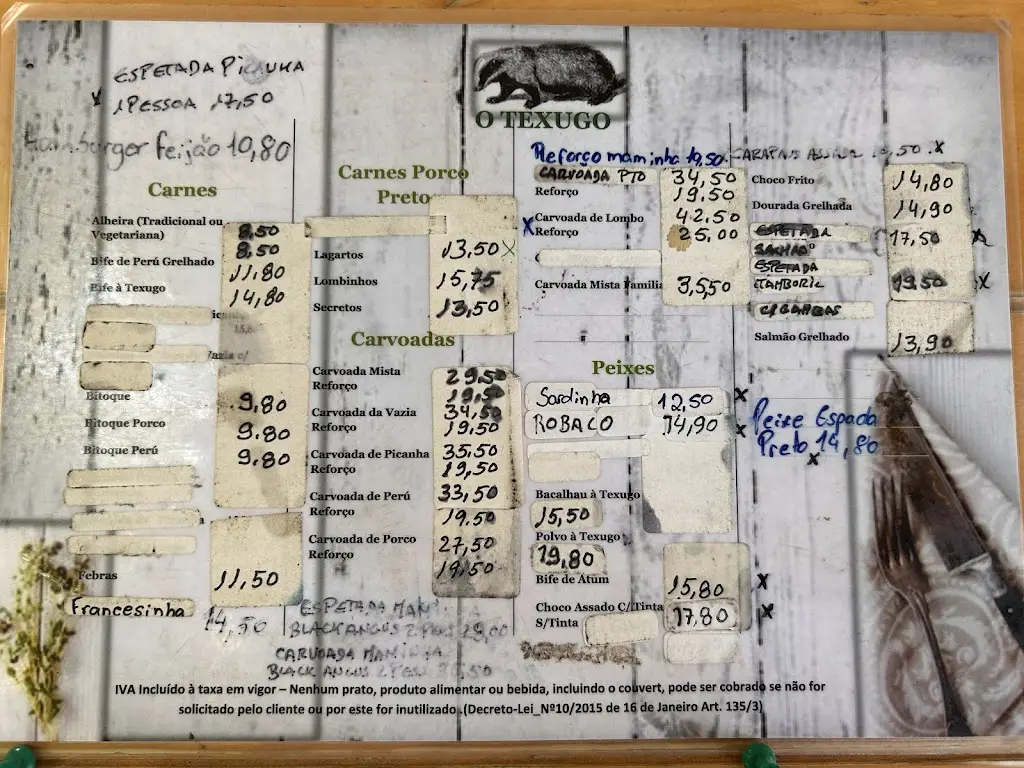 ESPETADA PICANHA
1 PESSOA 17,50
Hamburger feijão 10,80
O TEXUGO
Carnes
Alheira (Tradicional ou 8,50
Vegetariana) 8,50
Bife de Perú Grelhado 11,80
Bife à Texugo 14,80
Bitoque 9.80
Bitoque Porco 9.80
Bitoque Perú 9.80
Febras 11,50
Francesinha 14,50
Carnes Porco
Preto
Lagartos 13,50
Lombinhos 15,75
Secretos 13,50
Carvoadas
Carvoada Mista 29,50
Reforço 19,50
Carvoada da Vazia 34,50
Reforço 19.50
Carvoada de Picanha 35.50
Reforço 19,50
Carvoada de Perú 33,50
Reforço 19.50
Carvoada de Porco 27,50
Reforço 19,50
ESPETADA
BLACK ANGUS 2
CARVOADA MAMINHA
BLACK ANGUS 2
Reforço maminha 19,50.
CARVOADA PTO 34,50
Reforço 19.50
Carvoada de Lombo 42.50
X Reforço 25,00
Carvoada Mista Familia 35,50
Peixes
Sardinha 12,50 x
ROBALO 14,90 x
Bacalhau à Texugo
15,50
Polvo à Texugo
19,80
Bife de Atum 15,80 x
Choco Assado C/Tinta 17,80 x
S/Tinta
Choco Frito 14,80
Dourada Grelhada 14,90
ESPETADA 17,50 x
ESPETADA
TAMBORIL 19,50 x
Salmão Grelhado 13,90
Peixe Espada
Preto 14,80
x
IVA Incluído à taxa em vigor – Nenhum prato, produto alimentar ou bebida, incluindo o couvert, pode ser cobrado se não for
solicitado pelo cliente ou por este for inutilizado .(Decreto-Lei_Nº10/2015 de 16 de Janeiro Art. 135/3)